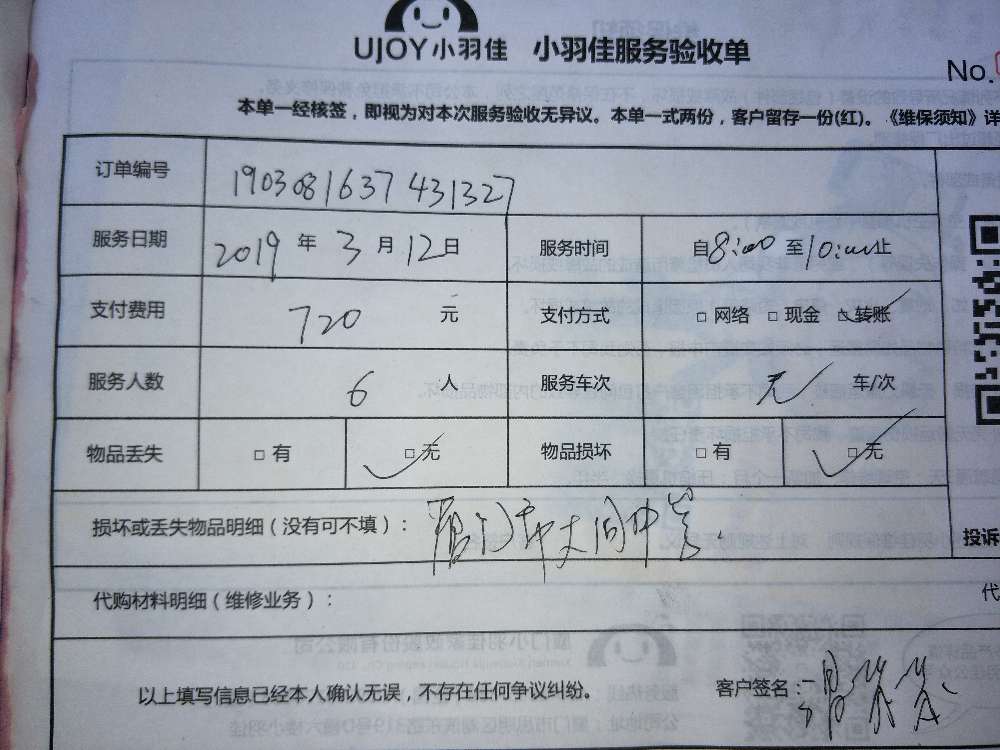 UJOY小羽佳 小羽佳服务验收单
No.
本单一经核签，即视为对本次服务验收无异议。本单一式两份，客户留存一份(红)。《维保须知》详
订单编号 190308163743 1327
服务日期 2019 年 3 月 12 日 服务时间 自 8:00 至 10:00 止
支付费用 720 元 支付方式 □ 网络 □ 现金 □ 转账
服务人数 6 人 服务车次 无 车/次
物品丢失 □ 有 □ 无 物品损坏 □ 有 □ 无
损坏或丢失物品明细（没有可不填）：
投诉
代购材料明细（维修业务）：
代
以上填写信息已经本人确认无误，不存在任何争议纠纷。 客户签名：